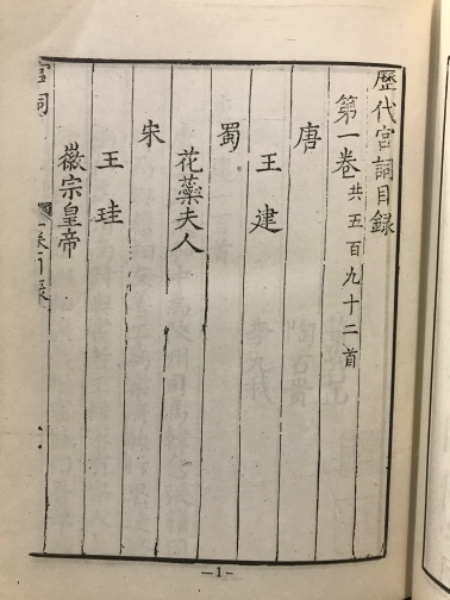 歷代宮詞目錄
第一卷共五百九十二首
唐
王建
蜀
花蘂夫人
宋
王珪
徽宗皇帝
宮詞
—1—